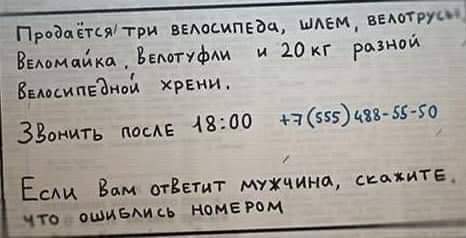 Продаётся три велосипеда, шлем, велотрусы
Веломайка, Велотуфли и 20 кг разной
Велосипедной хрени.
Звонить после 18:00 +7(555)488-55-50
Если вам ответит мужчина, скажите,
что ошиблись номером